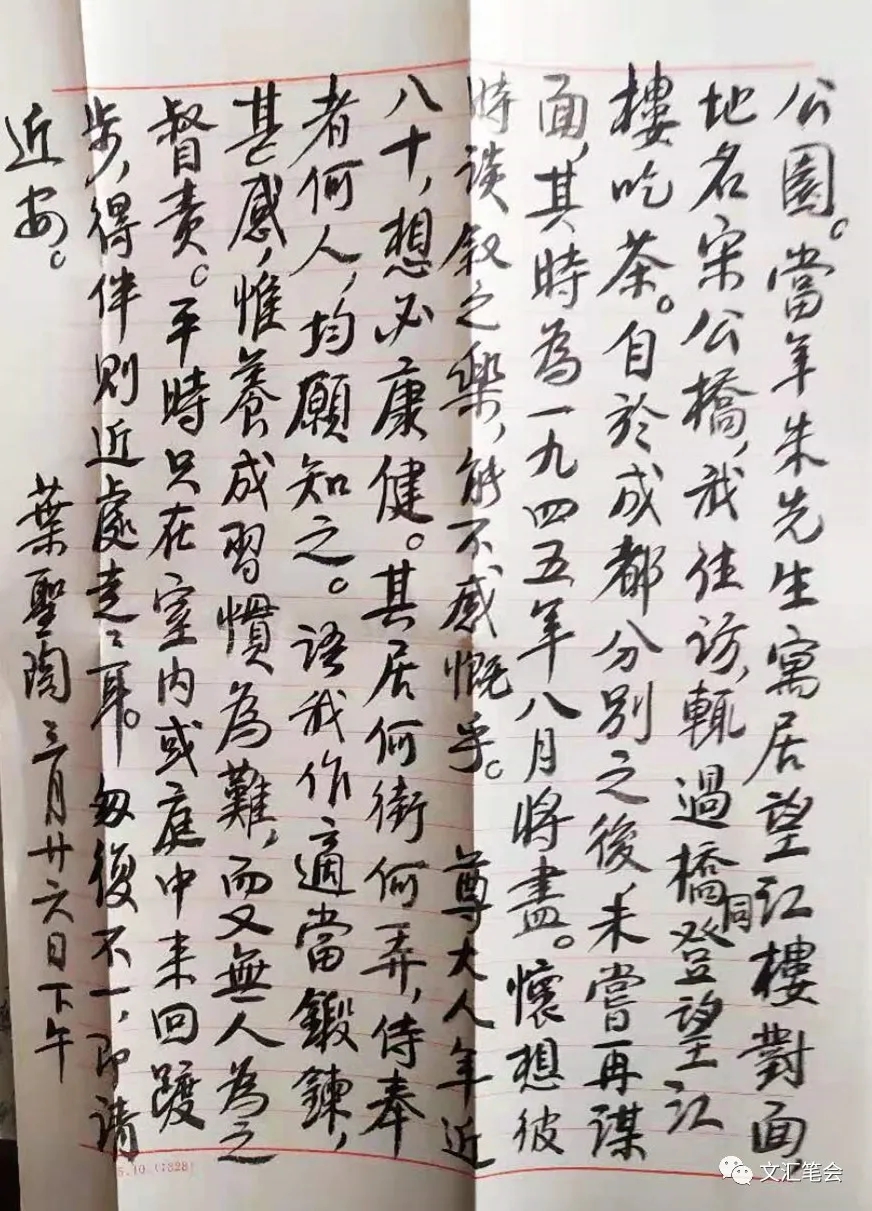 公園。當年朱先生寓居望江樓對面，
地名宋公橋，我往訪，輒過橋同登望江
樓吃茶。自於成都分別之後，未嘗再謀
面，其時為一九四五年八月將盡。懷想彼
時談叙之樂，能不感慨乎。尊大人年近
八十，想必康健。其居何街何弄，侍奉
者何人，均願知之。語我作適當鍛鍊，
甚感，惟養成習慣為難，而又無人為之
督責。平時只在室内或庭中来回踱
步，得伴則近處走々耳。匆復不一，即請
近安。
葉聖陶 三月廿六日下午
5.10（1328）
文汇笔会